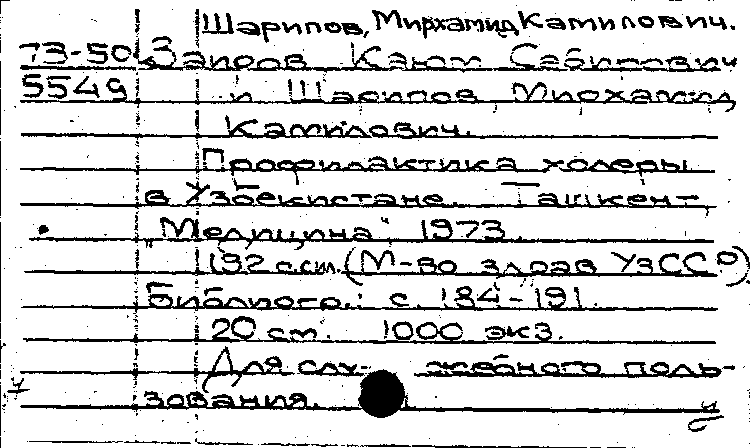 Шарипов, Мирхамид Камилович.
73-50 Заиров Каюм Сабирович
5549 и Шарипов, Мирхамид
Камилович.
Профилактика холеры
в Узбекистане. Ташкент,
"Медицина" 1973.
192 с.см. (М-во здрав УзССР)
Библиогр.: с. 184-191.
20 см. 1000 экз.
Для слу- жебного поль-
зования.